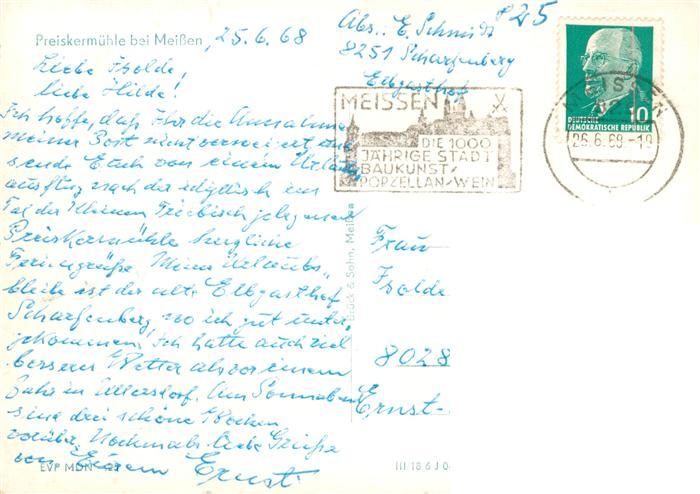 Preiskermühle bei Meißen, 25.6.68
Liebe Isolde,
liebe Hilde!
Ich hoffe, daß Ihr die Annahme
meiner Post nicht verweigert, und
sende Euch von einem Urlaubs
ausflug nach der idyllisch im
Tal der Kleinen Triebisch gelegenen
Preiskermühle herzliche
Feriengrüße. Meine Urlaubs-
bleibe ist der alte Elbgasthof
Scharfenberg, wo ich gut unter-
gekommen. Ich hatte auch viel
besseres Wetter als vor einem
Jahr in Ullersdorf. Am Sonnabend
sind drei schöne Wochen
vorüber. Nochmals liebe Grüße
von Eurem Ernst.
EVP MDN
Brück & Sohn, Meißen
III 18 6 J
Abs.: E. Schmidt
8251 Scharfenberg
Elbgasthof
MEISSEN
DIE 1000
JÄHRIGE STADT
BAUKUNST/
PORZELLAN/WEIN
10
DEUTSCHE
DEMOKRATISCHE REPUBLIK
26.6.68.-19
Frau
Isolde
8028
Ernst-